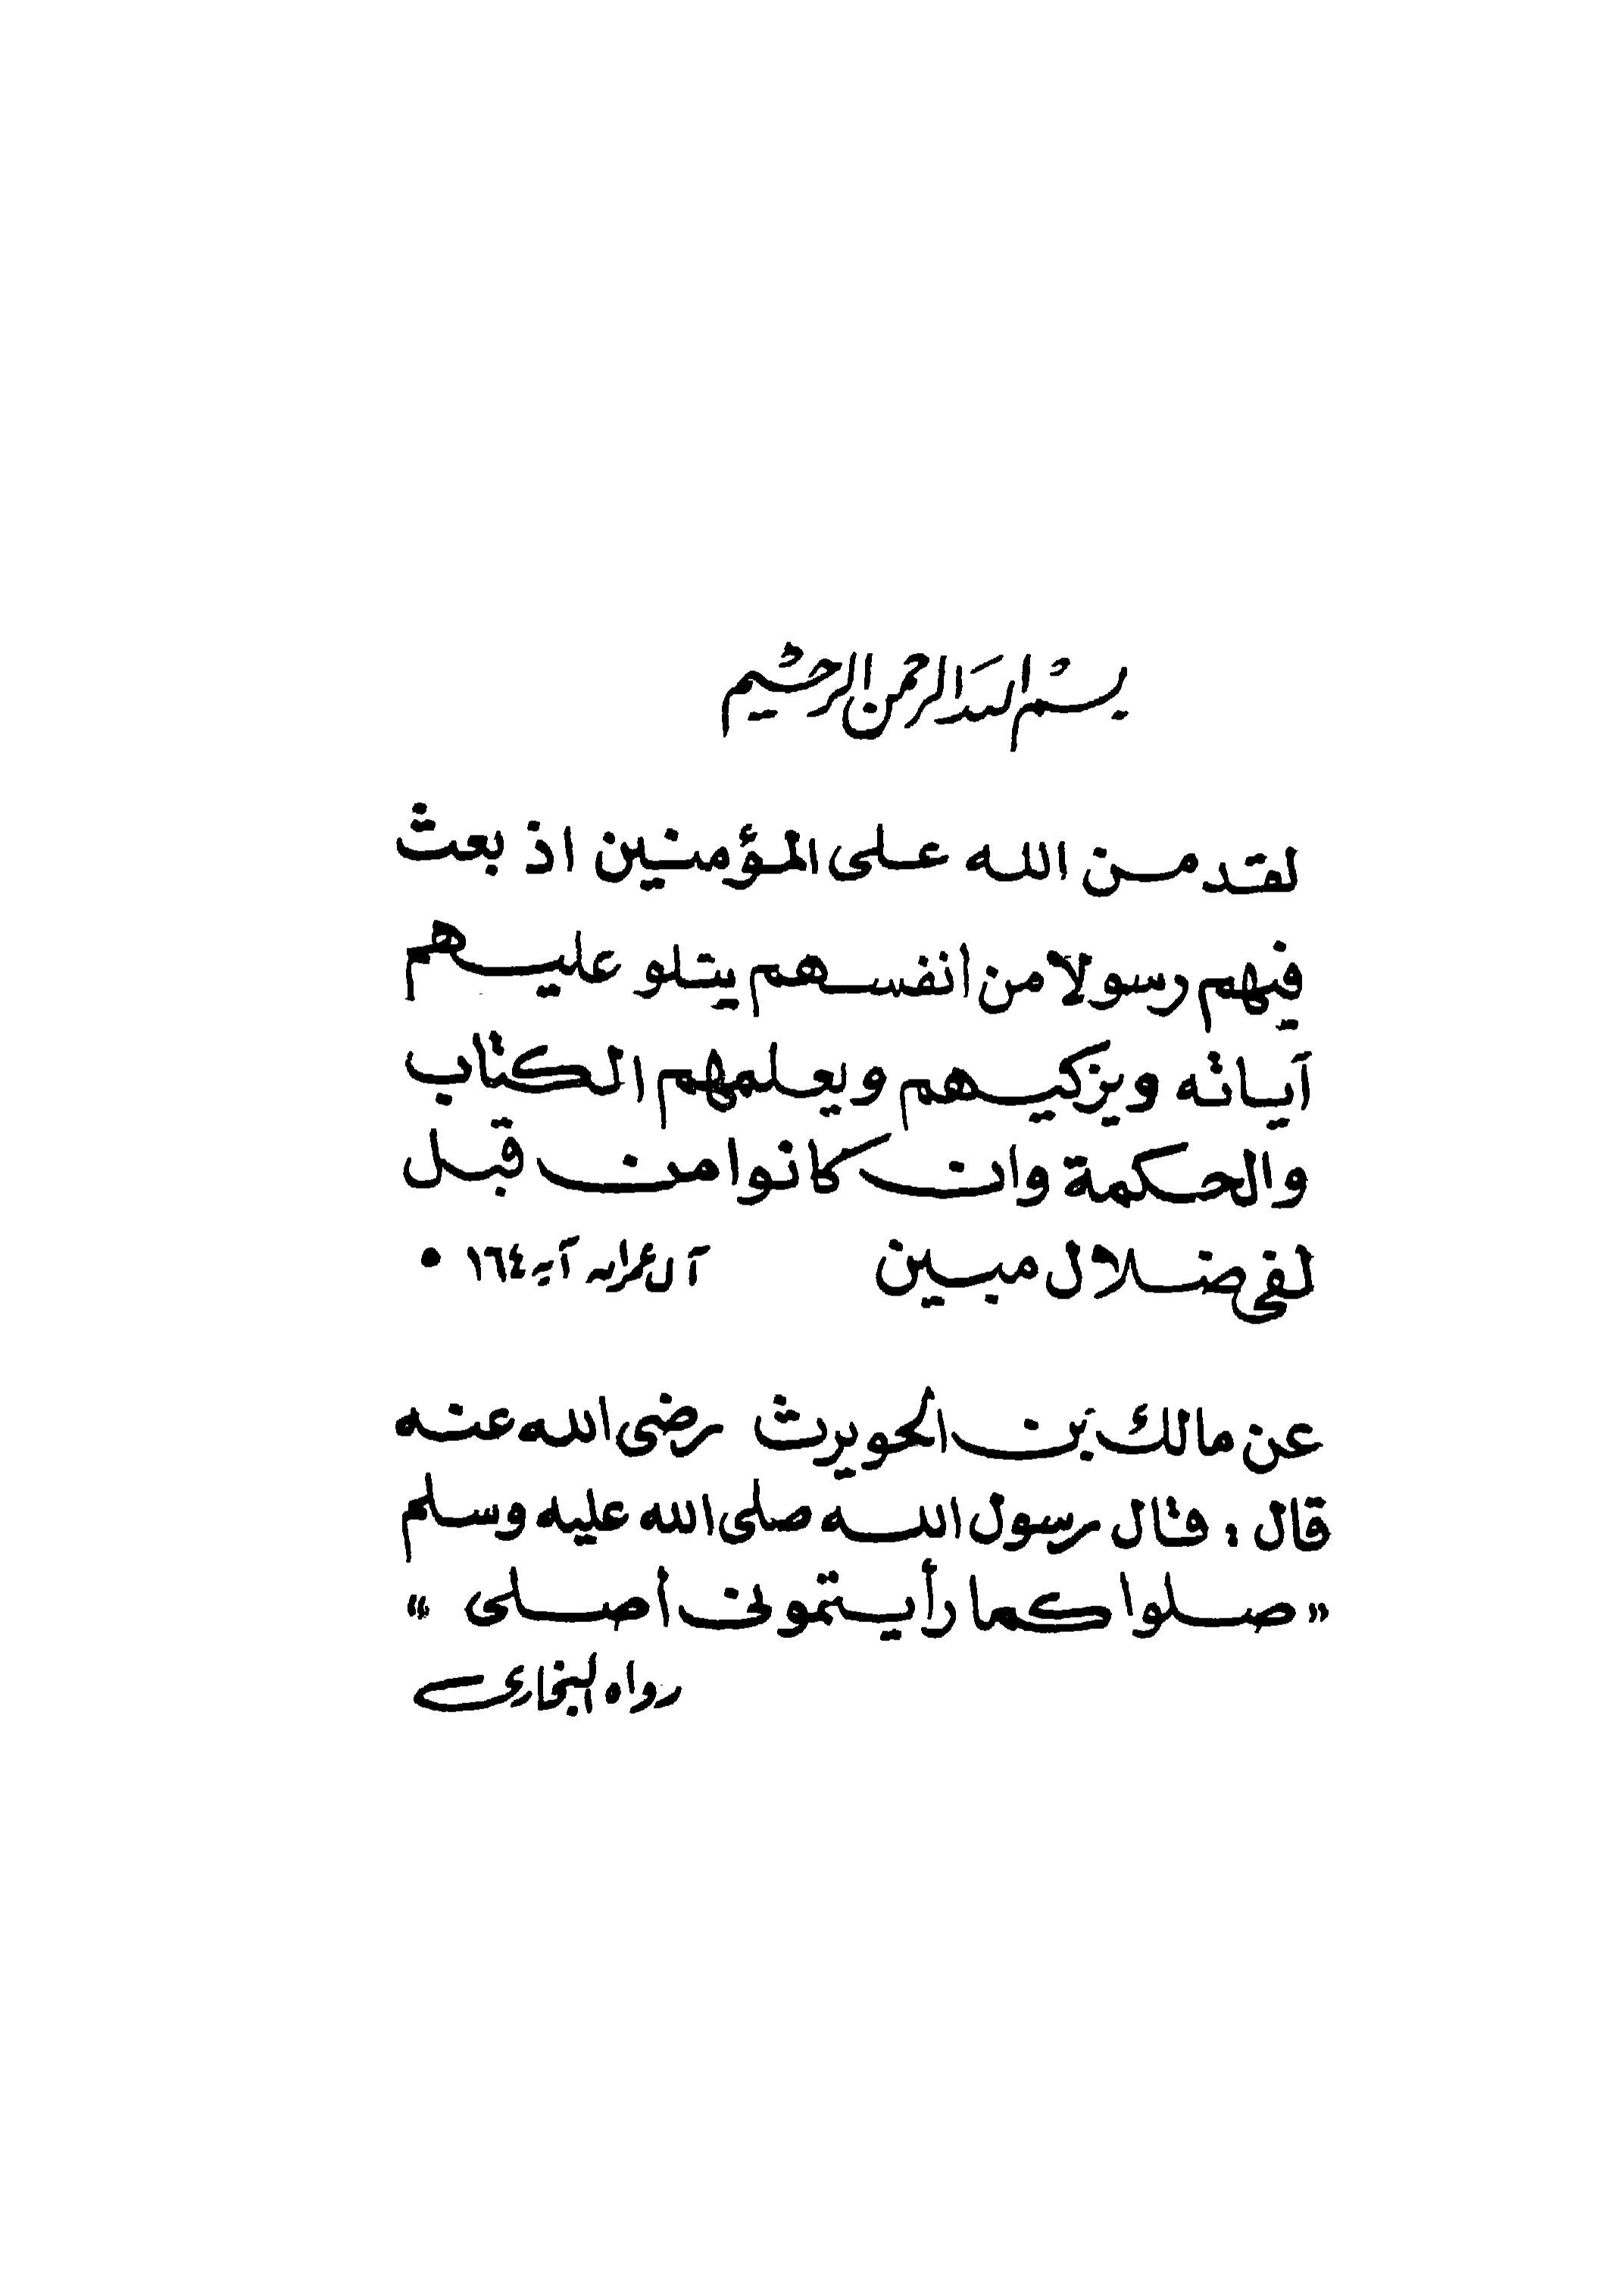 بسم الله الرحمن الرحيم
لقد من الله على المؤمنين اذ بعث
فيهم رسولا من انفسهم يتلو عليهم
آياته ويزكيهم ويعلمهم الكتاب
والحكمة وان كانوا من قبل
لفى ضلال مبين آل عمران آية ١٦٤ •
عن مالك بن الحويرث رضى الله عنه
قال : قال رسول الله صلى الله عليه وسلم
« صلوا كما رأيتمونى أصلى »
رواه البخارى